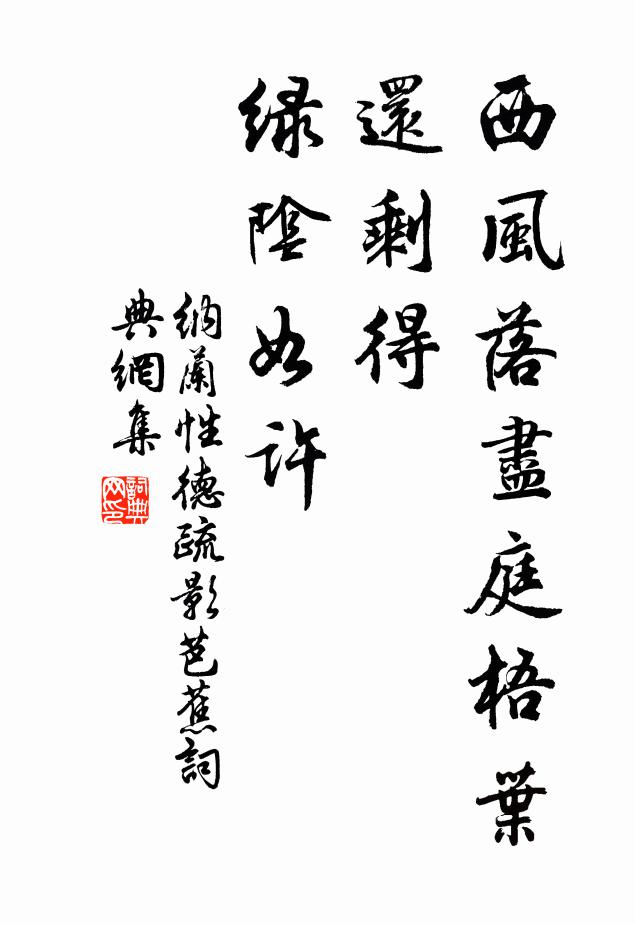 西風落盡庭梧葉
還剩得
綠陰如許
納蘭性德疏影芭蕉詞
典網集
詞典
网印